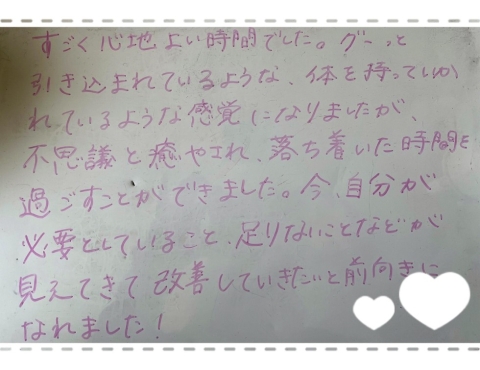 すごく心地よい時間でした。グーっと
引き込まれているような、体を持っていか
れているような感覚になりましたが、
不思議と癒やされ、落ち着いた時間を
過ごすことができました。今、自分が
必要としていること、足りないことなどが
見えてきて改善していきたいと前向きに
なれました!